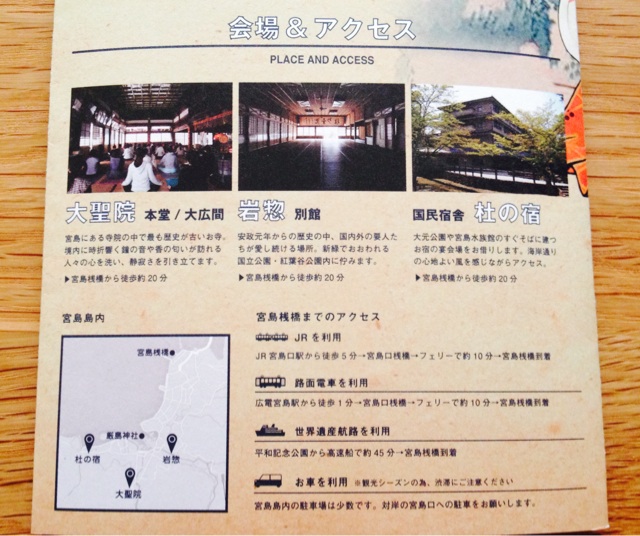 会場&アクセス
PLACE AND ACCESS
大聖院 本堂 / 大広間
宮島にある寺院の中で最も歴史が古いお寺。
境内に時折響く鐘の音や香の匂いが訪れる
人々の心を洗い、静寂さを引き立てます。
▶宮島桟橋から徒歩約20分
岩惣 別館
安政元年からの歴史の中、国内外の要人た
ちが愛し続ける場所。新緑でおおわれる
国立公園・紅葉谷公園内に佇みます。
▶宮島桟橋から徒歩約20分
国民宿舎 杜の宿
大元公園や宮島水族館のすぐそばに建つ
お宿の宴会場をお借りします。海岸通り
の心地よい風を感じながらアクセス。
▶宮島桟橋から徒歩約20分
宮島島内
宮島桟橋
厳島神社
杜の宿
岩惣
大聖院
宮島桟橋までのアクセス
JRを利用
JR宮島口駅から徒歩5分→宮島口桟橋→フェリーで約10分→宮島桟橋到着
路面電車を利用
広電宮島駅から徒歩1分→宮島口桟橋→フェリーで約10分→宮島桟橋到着
世界遺産航路を利用
平和記念公園から高速船で約45分→宮島桟橋到着
お車を利用 ※観光シーズンの為、渋滞にご注意ください
宮島島内の駐車場は少数です。対岸の宮島口への駐車をお願いします。